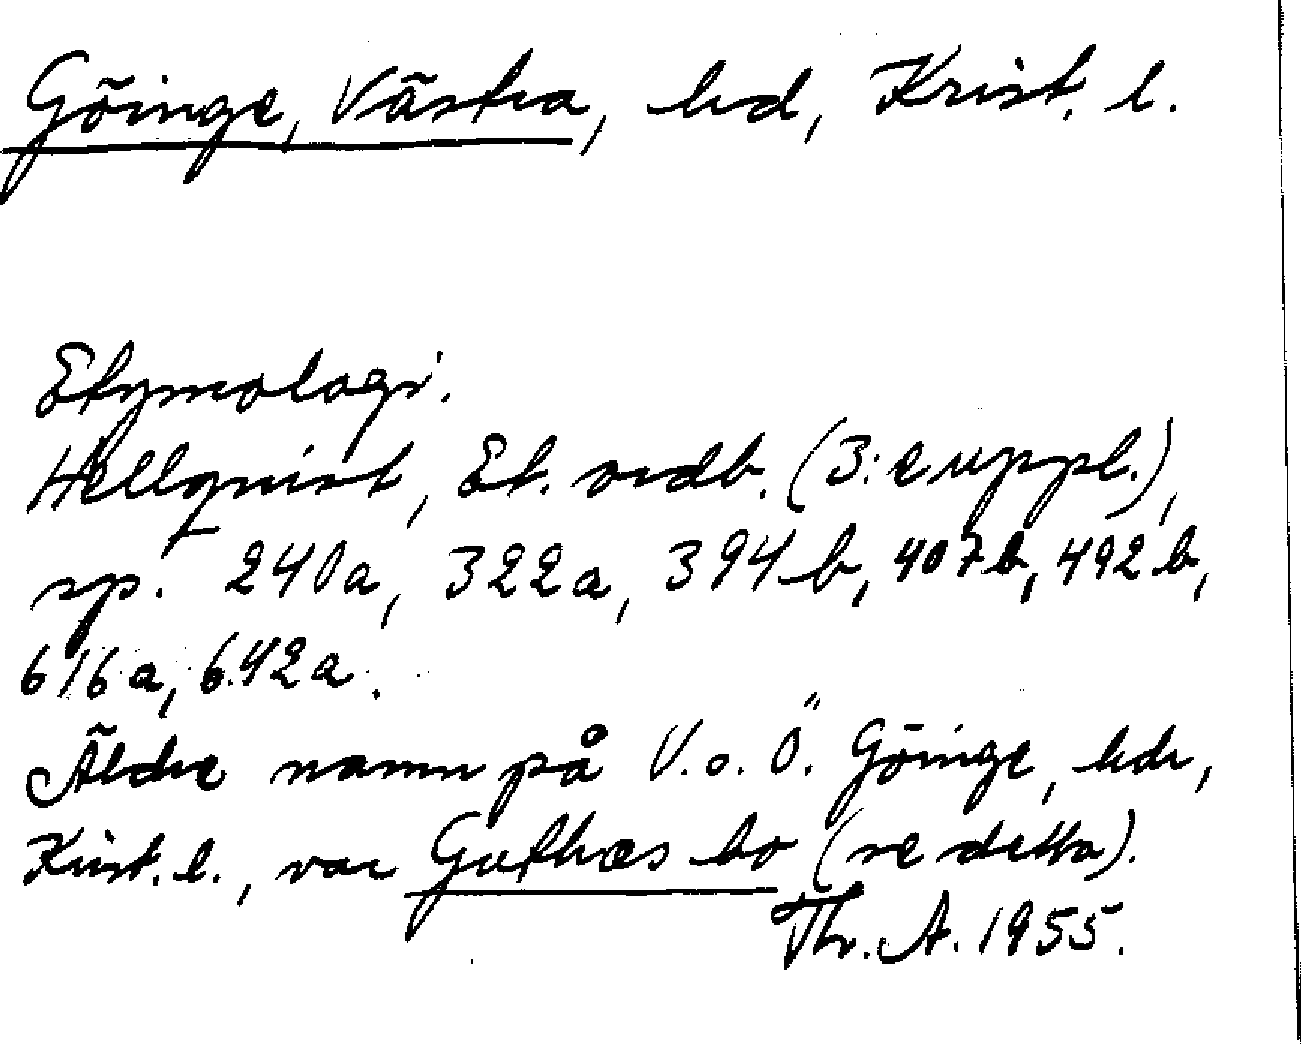 Göinge, Västra, hd, Krist. l.
Etymologi.
Hellquist, Et. ordb. (3:e uppl.),
sp. 240a, 322a, 394b, 407b, 492b,
616a, 642a.
Äldre namn på V. o. Ö. Göinge, hdr,
Krist. l., var Guthæs bo (se detta).
Thr. A. 1955.